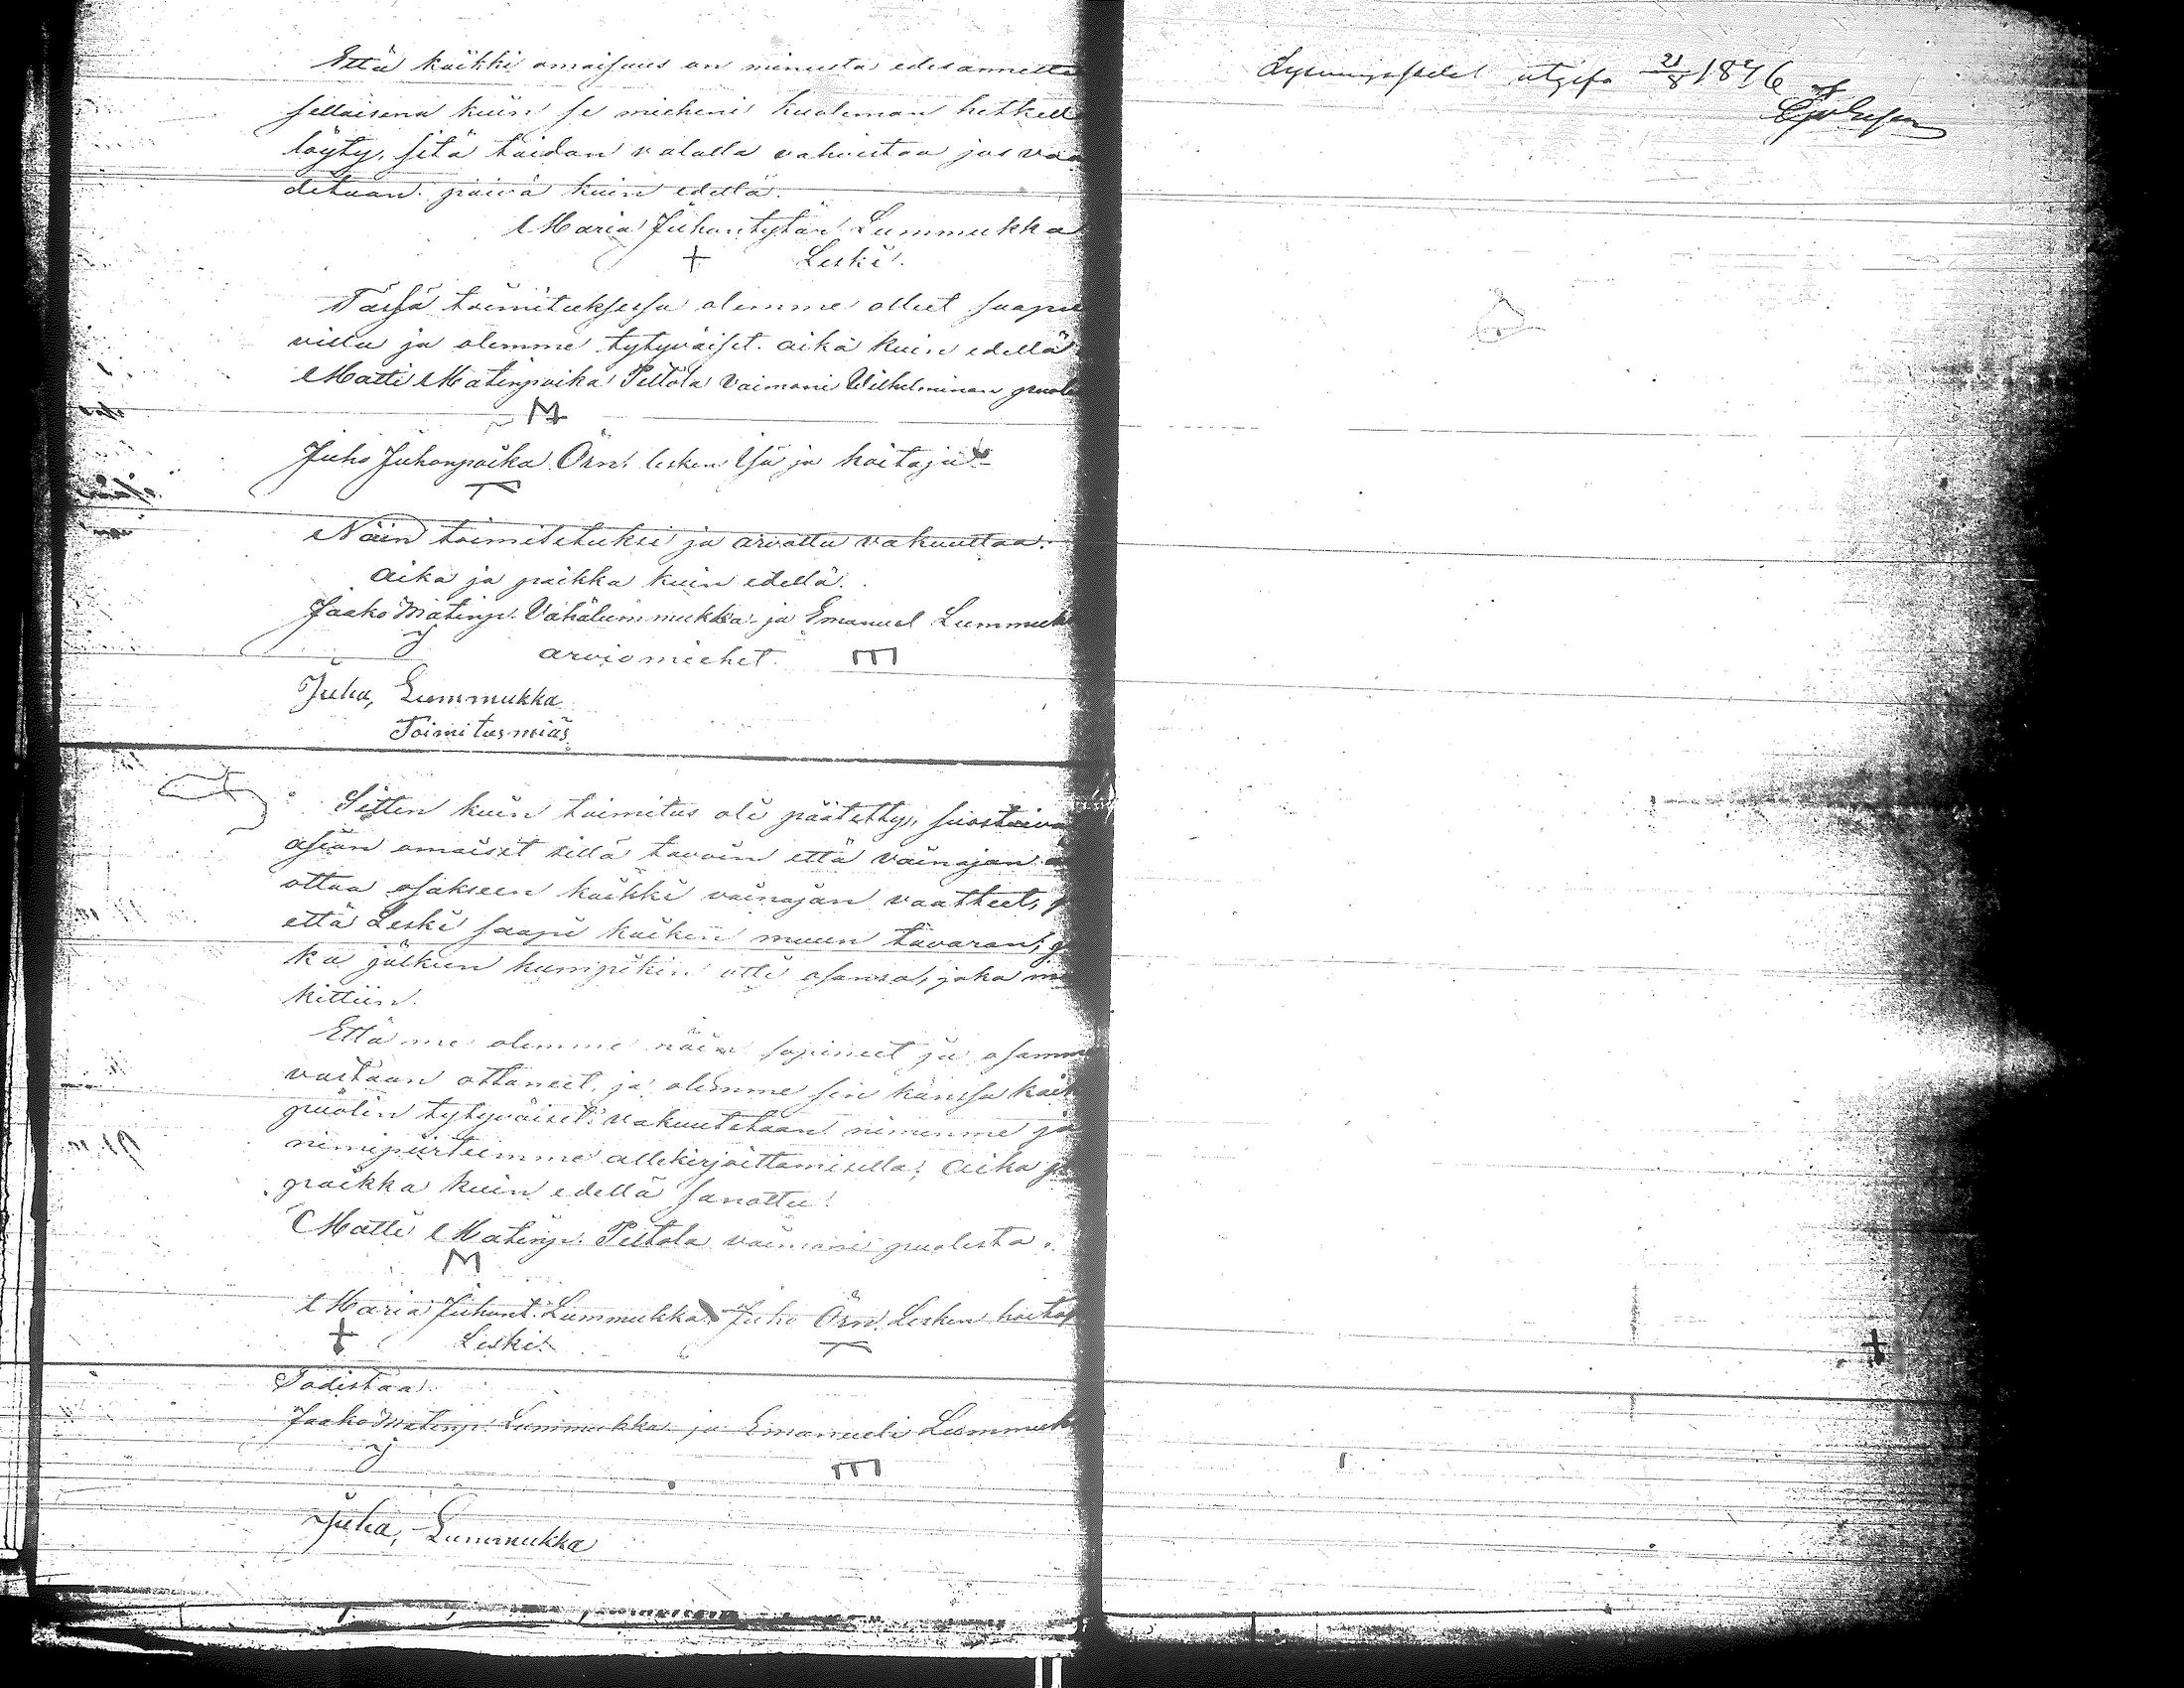 Että kaikki omaisuus on minusta edesannettu
sellaisena kuin se mieheni kuoleman hetkell
löyty, sitä taidan valalla vahvistaa jos vaa
ditaan. päivä kuin edellä.
Maria Juhontytär Lummukka
+ Leski.
Tässä toimituksessa olemme olleet saapu
villa ja olemme tytyväiset. aika kuin edellä
Matti Matinpoika Peltola Vaimoni Wilhelminan puol
M
Juho Juhonpoika Örn lesken Isä ja hoitaja
Näin toimitetuksi ja arvattu vakuuttaa.
aika ja paikka kuin edellä.
Jaako Matinp. Vähälummukka ja Emanuel Lummuk
arviomiehet. m
Juha, Lummukka
Toimitusmiäs.
Sitten kuin toimitus oli päätetty, suostuiva
asian omaiset sillä tavoin että vainajan
ottaa osakseen kaikki vainajan vaatteet,
että Leski saapi kaiken muun tavaran,
ka jälkeen kumpikin otti osansa, joka
kittiin.
Että me olemme näin sopineet ja osamme
vastaan ottaneet, ja olemme sen kanssa kaik
puolin tytyväiset. vakuutetaan nimemme ja
nimipiirteemme allekirjoittamisella; aika ja
paikka kuin edellä sanottu.
Matti Matinp. Peltola vaimoni puolesta.
M
Maria Juhont. Lummukka Juho Örn Lesken hoitaj
+ Leski.
Todistaa.
Jaako Matinp. Lummukka ja Emanueli Lummuk
m
Juha, Lummukka
utgifv 21/8 1876